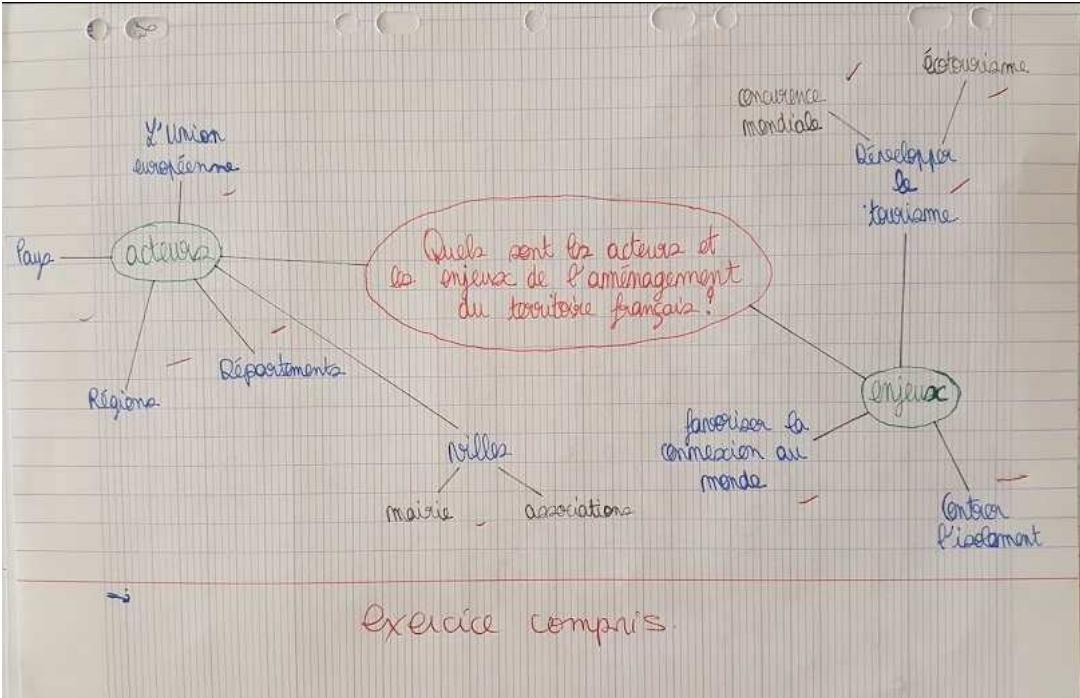 Quels sont les acteurs et
les enjeux de l'aménagement
du territoire français ?
acteurs
L'Union
européenne
Pays
Régions
Départements
villes
mairie
associations
enjeux
Développer
le
tourisme
concurence
mondiale
écotourisme
favoriser la
connexion au
monde
Contrer
l'isolement
exercice compris.